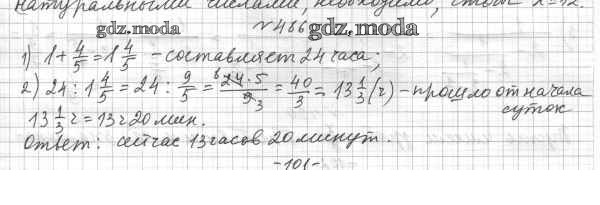 натуральными числами, необходимо, чтобы x=12.
gdz.moda №486 gdz.moda
1) 1+4/5=1 4/5 - составляет 24 часа;
2) 24 : 1 4/5 = 24 : 9/5 = 24·5/9 = 40/3 = 13 1/3 (ч) - прошло от начала
суток
13 1/3 ч = 13 ч 20 мин.
Ответ: сейчас 13 часов 20 минут.
-101-